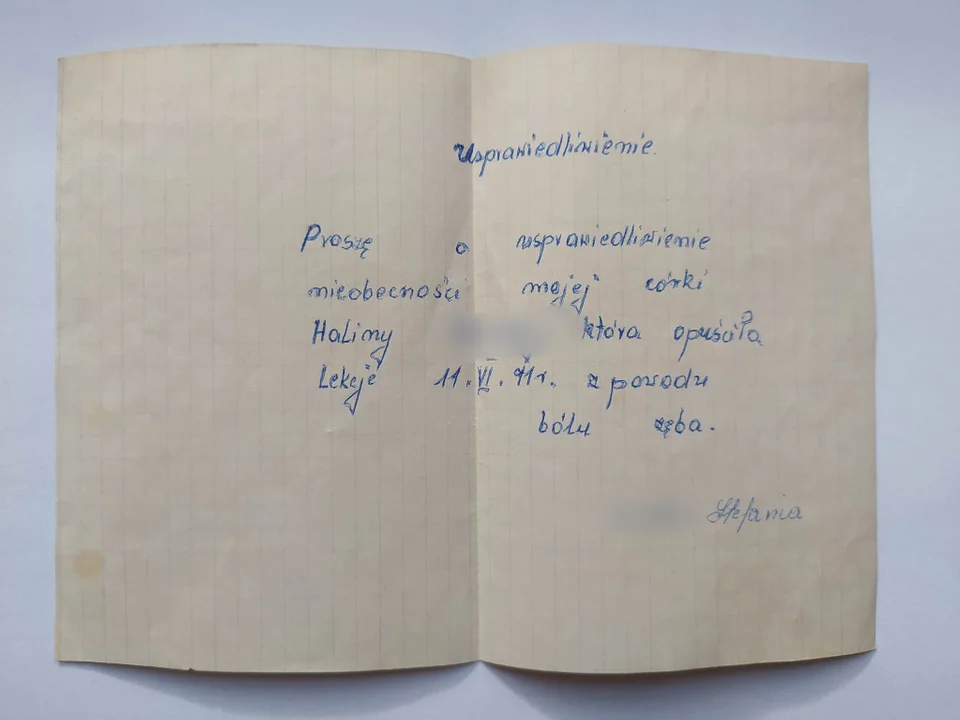 Usprawiedliwienie.
Proszę o usprawiedliwienie
nieobecności mojej córki
Haliny która opuściła
Lekcje 11.VI.71r. z powodu
bólu zęba.
Stefania